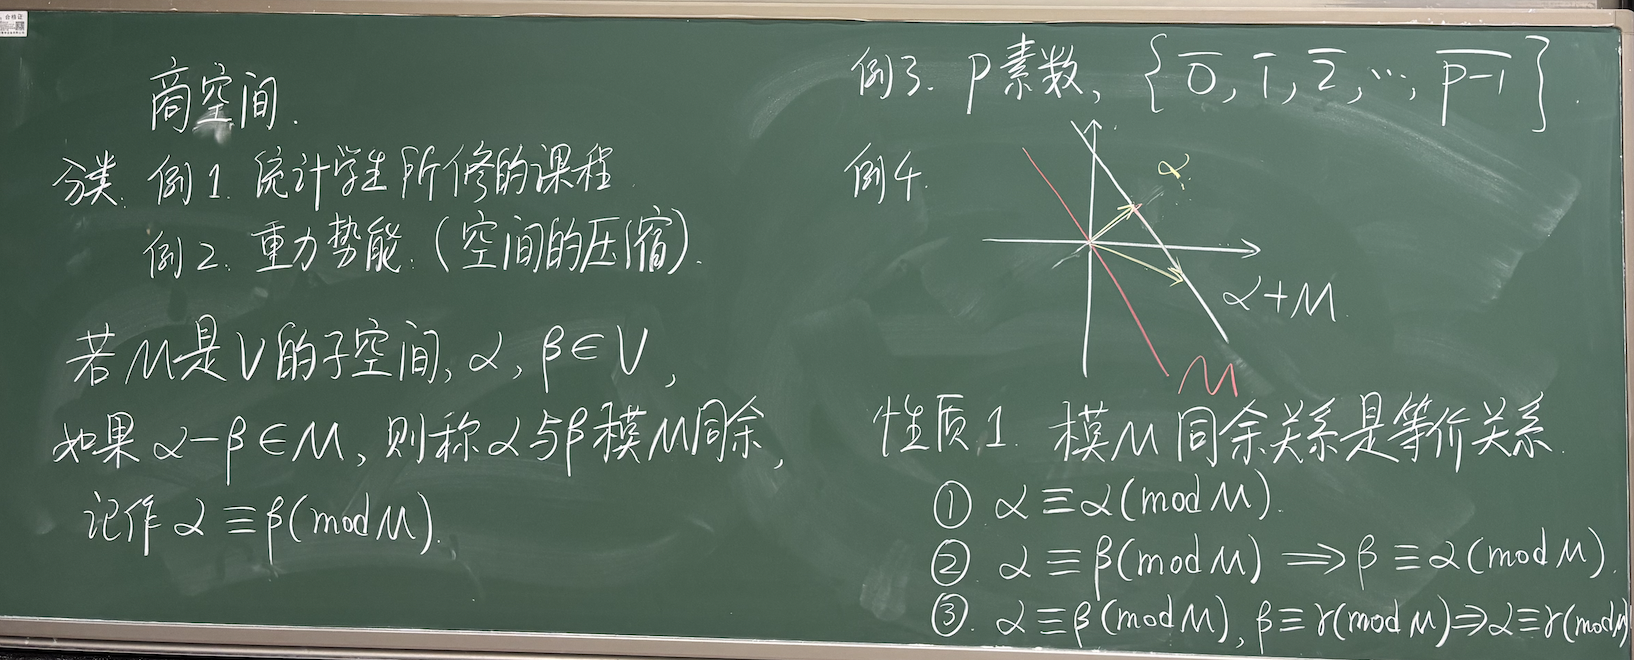 商空间.
分类. 例1. 统计学生所修的课程.
例2. 重力势能. (空间的压缩).
若M是V的子空间, α, β∈V,
如果 α-β∈M, 则称α与β模M同余,
记作 α≡β(mod M).
例3. p素数, {0̅, 1̅, 2̅, …, p-1̅}.
例4.
α
α+M.
M
性质1. 模M同余关系是等价关系.
① α≡α(mod M).
② α≡β(mod M) ⟹ β≡α(mod M).
③ α≡β(mod M), β≡γ(mod M)⟹α≡γ(mod M)